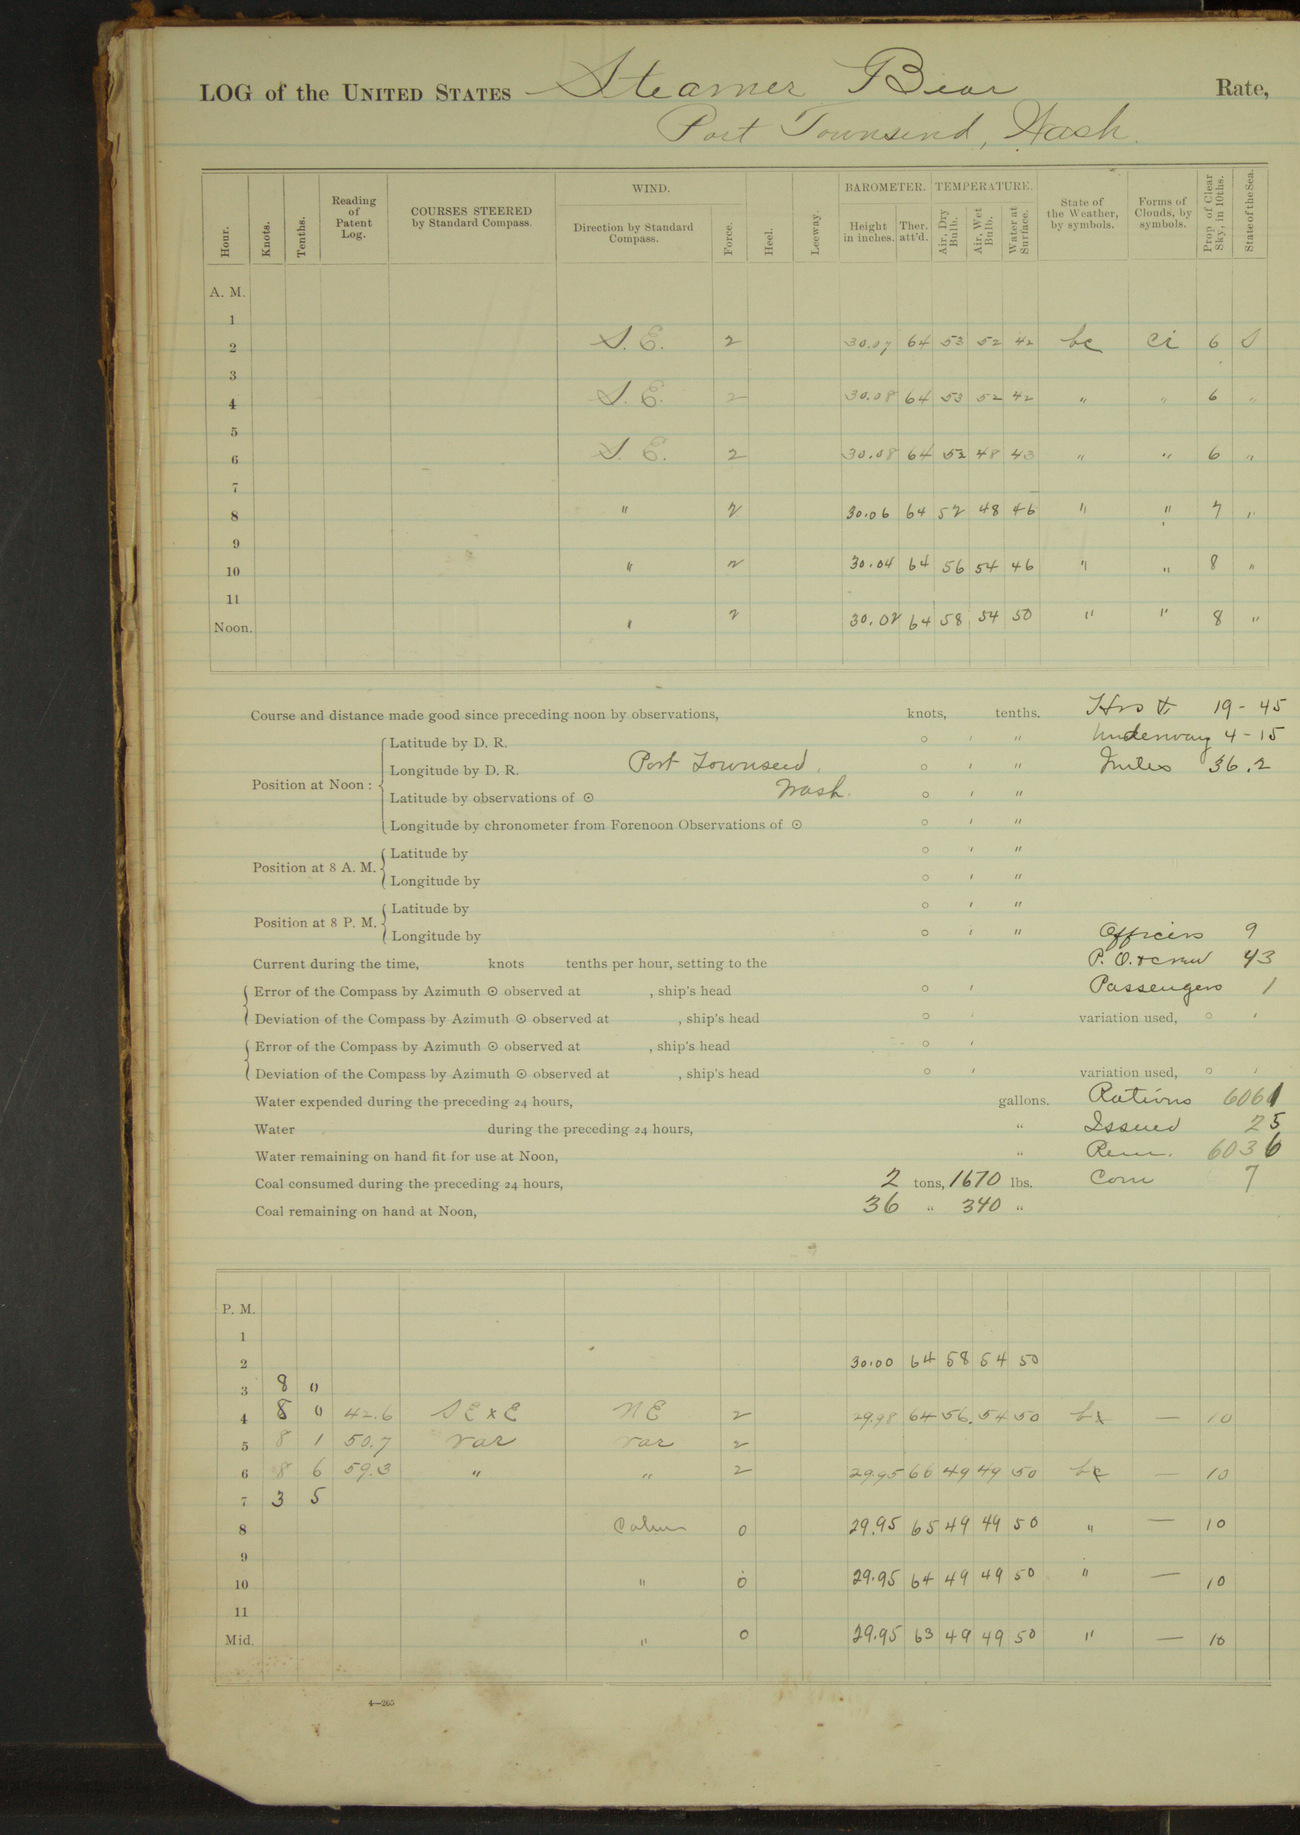 LOG of the UNITED STATES Steamer Bear Rate,
Port Townsend, Wash.
Hour. Knots. Tenths. Reading of Patent Log. COURSES STEERED by Standard Compass. WIND. Direction by Standard Compass. Force. Heel. Leeway. BAROMETER. Height in inches. Ther. att'd. TEMPERATURE. Air, Dry Bulb. Air, Wet Bulb. Water at Surface. State of the Weather, by symbols. Forms of Clouds, by symbols. Prop. of Clear Sky, in 10ths. State of the Sea.
A. M.
1
2 S. E. 2 30.07 64 53 52 42 bc ci 6 S
3
4 S. E. 2 30.08 64 53 52 42 " " 6 "
5
6 S. E. 2 30.08 64 52 48 43 " " 6 "
7
8 " 2 30.06 64 52 48 46 " " 7 "
9
10 " 2 30.04 64 56 54 46 " " 8 "
11
Noon. " 2 30.02 64 58 54 50 " " 8 "
Course and distance made good since preceding noon by observations, knots, tenths. 19-45
Position at Noon: Latitude by D. R. ° ' " Underway 4-15
Longitude by D. R. Port Townsend, ° ' " Miles 36.2
Latitude by observations of ☉ Wash. ° ' "
Longitude by chronometer from Forenoon Observations of ☉ ° ' "
Position at 8 A. M. Latitude by ° ' "
Longitude by ° ' "
Position at 8 P. M. Latitude by ° ' "
Longitude by ° ' " Officers 9
Current during the time, knots tenths per hour, setting to the P. O. & crew 43
Error of the Compass by Azimuth ☉ observed at , ship's head ° ' Passengers 1
Deviation of the Compass by Azimuth ☉ observed at , ship's head ° ' variation used, ° '
Error of the Compass by Azimuth ☉ observed at , ship's head ° '
Deviation of the Compass by Azimuth ☉ observed at , ship's head ° ' variation used, ° '
Water expended during the preceding 24 hours, gallons. Rations 6061
Water during the preceding 24 hours, " Issued 25
Water remaining on hand fit for use at Noon, " Rem. 6036
Coal consumed during the preceding 24 hours, 2 tons, 1670 lbs. Com 7
Coal remaining on hand at Noon, 36 " 340 "
P. M.
1
2 30.00 64 58 54 50
3 8 0
4 8 0 42.6 SExE NE 2 29.98 64 56 54 50 — 10
5 8 1 50.7 var var 2
6 8 6 59.3 " " 2 29.95 66 49 49 50 — 10
7 3 5
8 Calm 0 29.95 65 49 49 50 " — 10
9
10 " 0 29.95 64 49 49 50 " — 10
11
Mid. " 0 29.95 63 49 49 50 " — 10
4—265